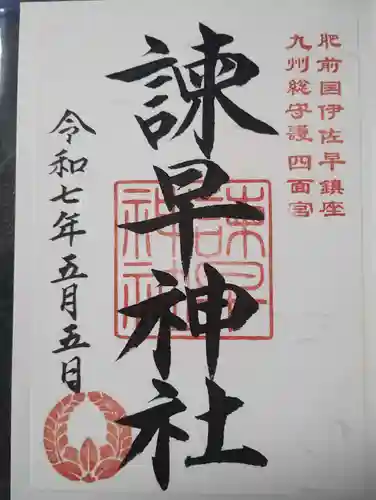 肥前国伊佐早鎮座
九州総守護 四面宮
諫早神社
諫早
神社
令和七年五月五日